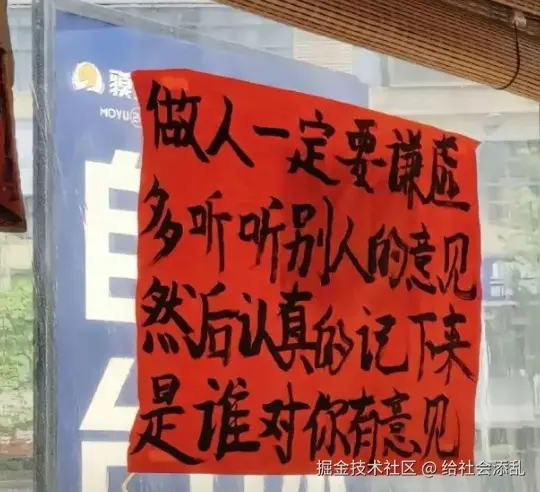 做人一定要谦虚
多听听别人的意见
然后认真的记下来
是谁对你有意见
MOYU
自
掘金技术社区 @ 给社会添乱